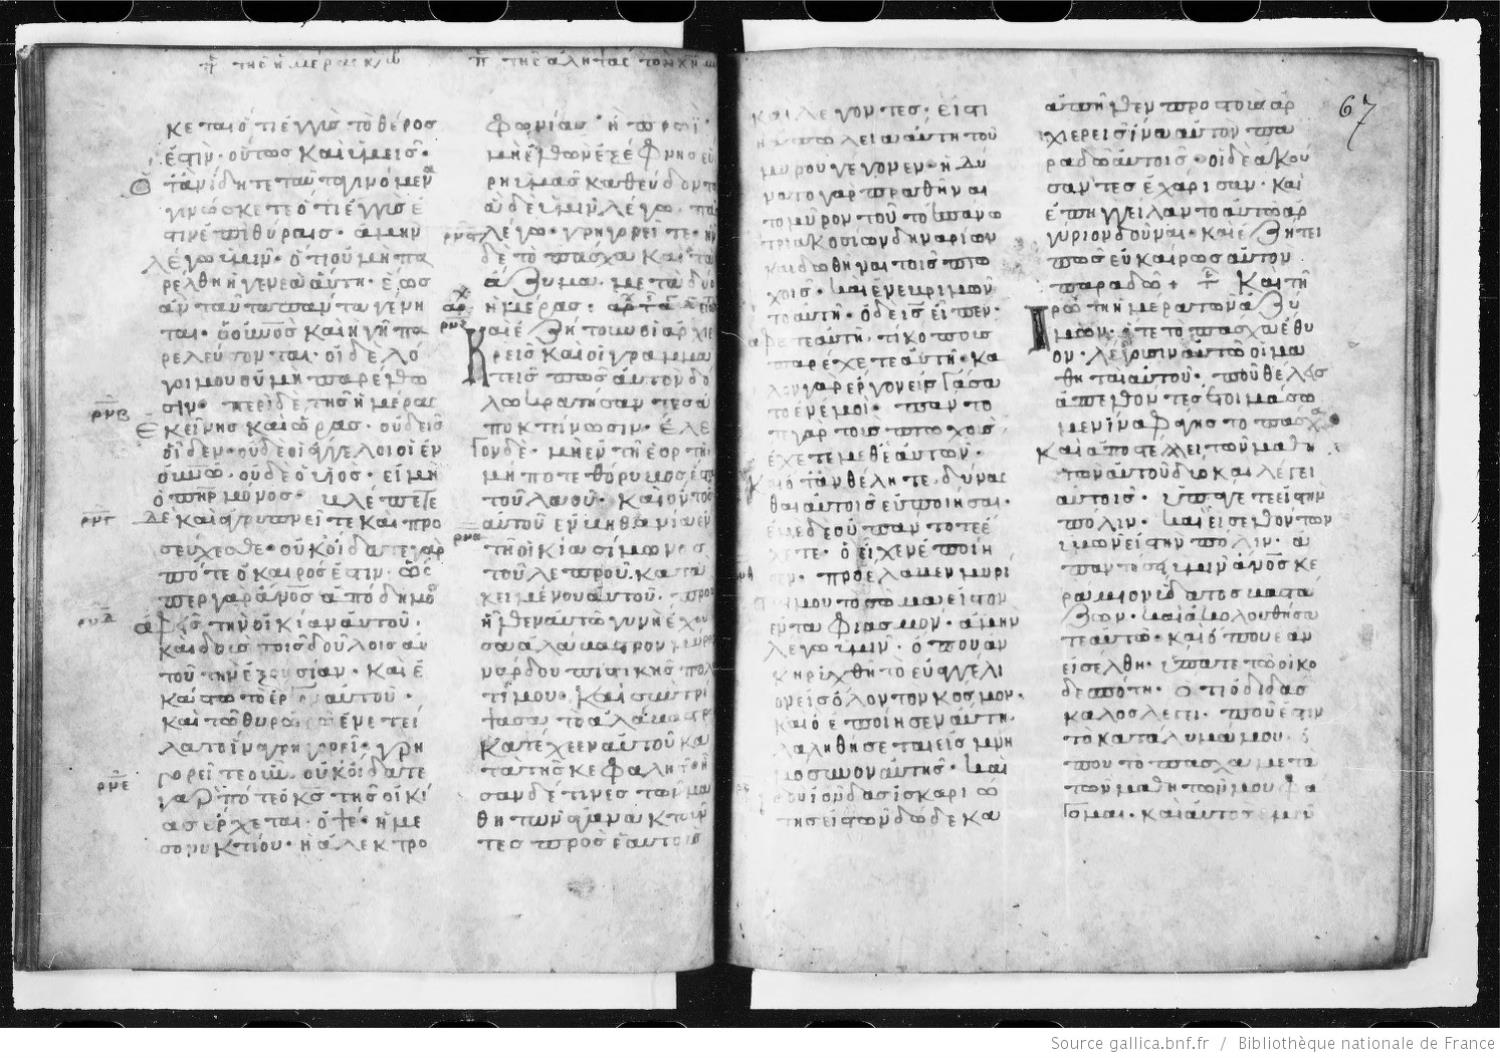 κεται ὅτι ἐγγὺς τὸ θέρος
ἐστίν· οὕτως καὶ ὑμεῖς·
ὅταν ἴδητε ταῦτα γινόμενα
γινώσκετε ὅτι ἐγγύς ἐ
στιν ἐπὶ θύραις· ἀμὴν
λέγω ὑμῖν· ὅτι οὐ μὴ πα
ρέλθη ἡ γενεὰ αὕτη· ἕως
ἂν ταῦτα πάντα γένη
ται· ὁ οὐνος καὶ ἡ γῆ πα
ρελεύσονται· οἱ δὲ λό
γοι μου οὐ μὴ παρέλθω
σιν· περὶ δὲ τῆς ἡμέρας
ἐκείνης καὶ ὥρας· οὐδεὶς
οἶδεν· οὐδὲ οἱ ἄγγελοι οἱ ἐν
οὐνω· οὐδὲ ὁ υἱός· εἰ μὴ
ὁ πηρ μόνος· βλέπετε
δὲ καὶ ἀγρυπνεῖτε καὶ προ
σεύχεσθε· οὐκ οἴδατε γὰρ
πότε ὁ καιρός ἐστιν· ὡς
περ γὰρ ἀνος ἀποδημῶ
ἀφεὶς τὴν οἰκίαν αὐτοῦ·
καὶ δοὺς τοῖς δούλοις αὐ
τοῦ τὴν ἐξουσίαν· καὶ ἑ
κάστω τὸ ἔργον αὐτοῦ·
καὶ τῶ θυρωρῶ ἐνετεί
λατο ἵνα γρηγορεῖ· γρη
γορεῖτε οὖν· οὐκ οἴδατε
γὰρ πότε ὁ κς τῆς οἰκί
ας ἔρχεται· ὀψὲ· ἢ με
σονυκτίου· ἢ ἀλεκτρο
φωνίας ἢ πρωΐ·
μὴ ἐλθὼν ἐξέφνης εὕ
ρη ὑμᾶς καθεύδοντας
ἃ δὲ ὑμῖν λέγω· πᾶσι
λέγω· γρηγορεῖτε· ἦν
δὲ τὸ πάσχα καὶ τὰ
ἄζυμα· μετὰ δύο
ἡμέρας·
Καὶ ἐζήτουν οἱ ἀρχιε
ρεῖς καὶ οἱ γραμμα
τεῖς πῶς αὐτὸν δό
λω κρατήσαντες ἀ
ποκτείνωσιν· ἔλε
γον δὲ· μὴ ἐν τῆ ἑορτῆ
μήποτε θόρυβος ἔσται
τοῦ λαοῦ· καὶ ὄντος
αὐτοῦ ἐν βηθανία ἐν
τῆ οἰκία σίμωνος
τοῦ λεπροῦ· κατα
κειμένου αὐτοῦ· προσ
ῆλθεν αὐτῶ γυνὴ ἔχου
σα ἀλάβαστρον μύρου
νάρδου πιστικῆς πολυ
τίμου· καὶ συντρί
ψασα τὸ ἀλάβαστρον
κατέχεεν αὐτοῦ κα
τὰ τῆς κεφαλῆς· ἦ
σαν δέ τινες τῶν μα
θητῶν ἀγανακτοῦν
τες πρὸς ἑαυτοὺς
67
καὶ λέγοντες· εἰς τί
ἡ ἀπώλεια αὕτη τοῦ
μύρου γέγονεν· ἠδύ
νατο γὰρ πραθῆναι
τὸ μύρον τοῦτο ἐπάνω
τριακοσίων δηναρίων
καὶ δοθῆναι τοῖς πτω
χοῖς· καὶ ἐνεβριμῶν
το αὐτῆ· ὁ δὲ ις εἶπεν·
ἄφετε αὐτὴ· τί κόπους
παρέχετε αὐτῆ· κα
λὸν γὰρ ἔργον εἰργάσα
το ἐν ἐμοί· πάντο
τε γὰρ τοὺς πτωχοὺς
ἔχετε μεθ ἑαυτῶν·
καὶ ὅταν θέλητε· δύνασ
θαι αὐτοῖς εὖ ποιῆσαι·
ἐμὲ δὲ οὐ πάντοτε ἔ
χετε· ὃ εἶχεν ἐποίη
σεν· προέλαβεν μυρί
σαι μου τὸ σῶμα εἰς τὸν
ἐνταφιασμόν· ἀμὴν
λέγω ὑμῖν· ὅπου ἂν
κηρυχθῆ τὸ εὐαγγέλι
ον εἰς ὅλον τὸν κόσμον·
καὶ ὃ ἐποίησεν αὕτη·
λαληθήσεται εἰς μνη
μόσυνον αὐτῆς· καὶ
ἰούδας ἰσκαριώ
της εἷς τῶν δώδεκα
ἀπῆλθεν πρὸς τοὺς ἀρ
χιερεῖς ἵνα αὐτὸν πα
ραδῶ αὐτοῖς· οἱ δὲ ἀκού
σαντες ἐχάρισαν· καὶ
ἐπηγγείλαντο αὐτῶ ἀρ
γύριον δοῦναι· καὶ ἐζήτει
πῶς εὐκαίρως αὐτὸν
παραδῶ + Καὶ τῆ
πρώτη ἡμέρα τῶν ἀζύ
μων· ὅτε τὸ πάσχα ἔθυ
ον· λέγουσιν αὐτῶ οἱ μα
θηταὶ αὐτοῦ· ποῦ θέλεις
ἀπελθόντες ἑτοιμάσω
μεν ἵνα φάγης τὸ πάσχα
καὶ ἀποστέλλει τῶν μαθη
τῶν αὐτοῦ δύο καὶ λέγει
αὐτοῖς· ὑπάγετε εἰς τὴν
πόλιν· καὶ εἰσελθόντων
ὑμῶν εἰς τὴν πόλιν· ἀ
παντήσει ὑμῖν ἀνος κε
ράμιον ὕδατος βαστά
ζων· καὶ ἀκολουθήσα
τε αὐτῶ· καὶ ὅπου ἐὰν
εἰσέλθη· εἴπατε τῶ οἰκο
δεσπότη· ὅτι ὁ διδάσ
καλος λέγει· ποῦ ἐστιν
τὸ κατάλυμα μου· ὅ
που τὸ πάσχα μετὰ
τῶν μαθητῶν μου φά
γομαι· καὶ αὐτὸς ὑμῖν
Source gallica.bnf.fr / Bibliothèque nationale de France